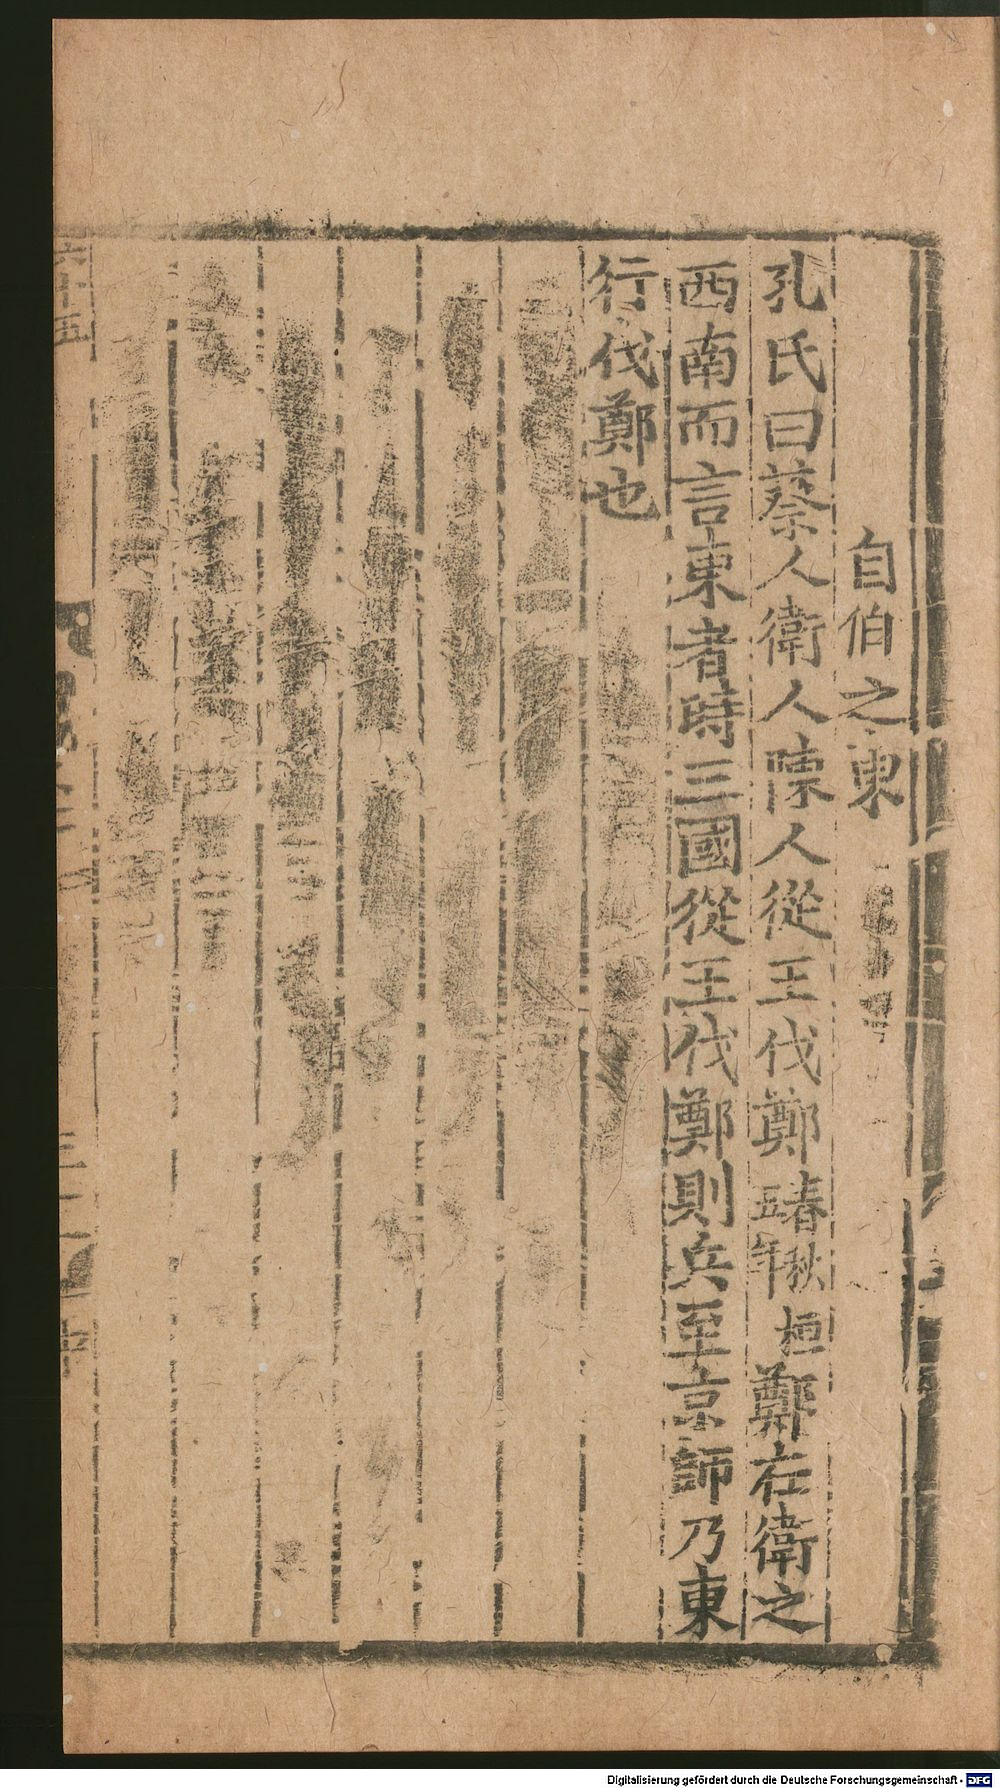 自伯之東
孔氏曰蔡人衛人陳人從王伐鄭春秋桓五年鄭在衛之
西南而言東者時三國從王伐鄭則兵至京師乃東
行伐鄭也
Digitalisierung gefördert durch die Deutsche Forschungsgemeinschaft - DFG